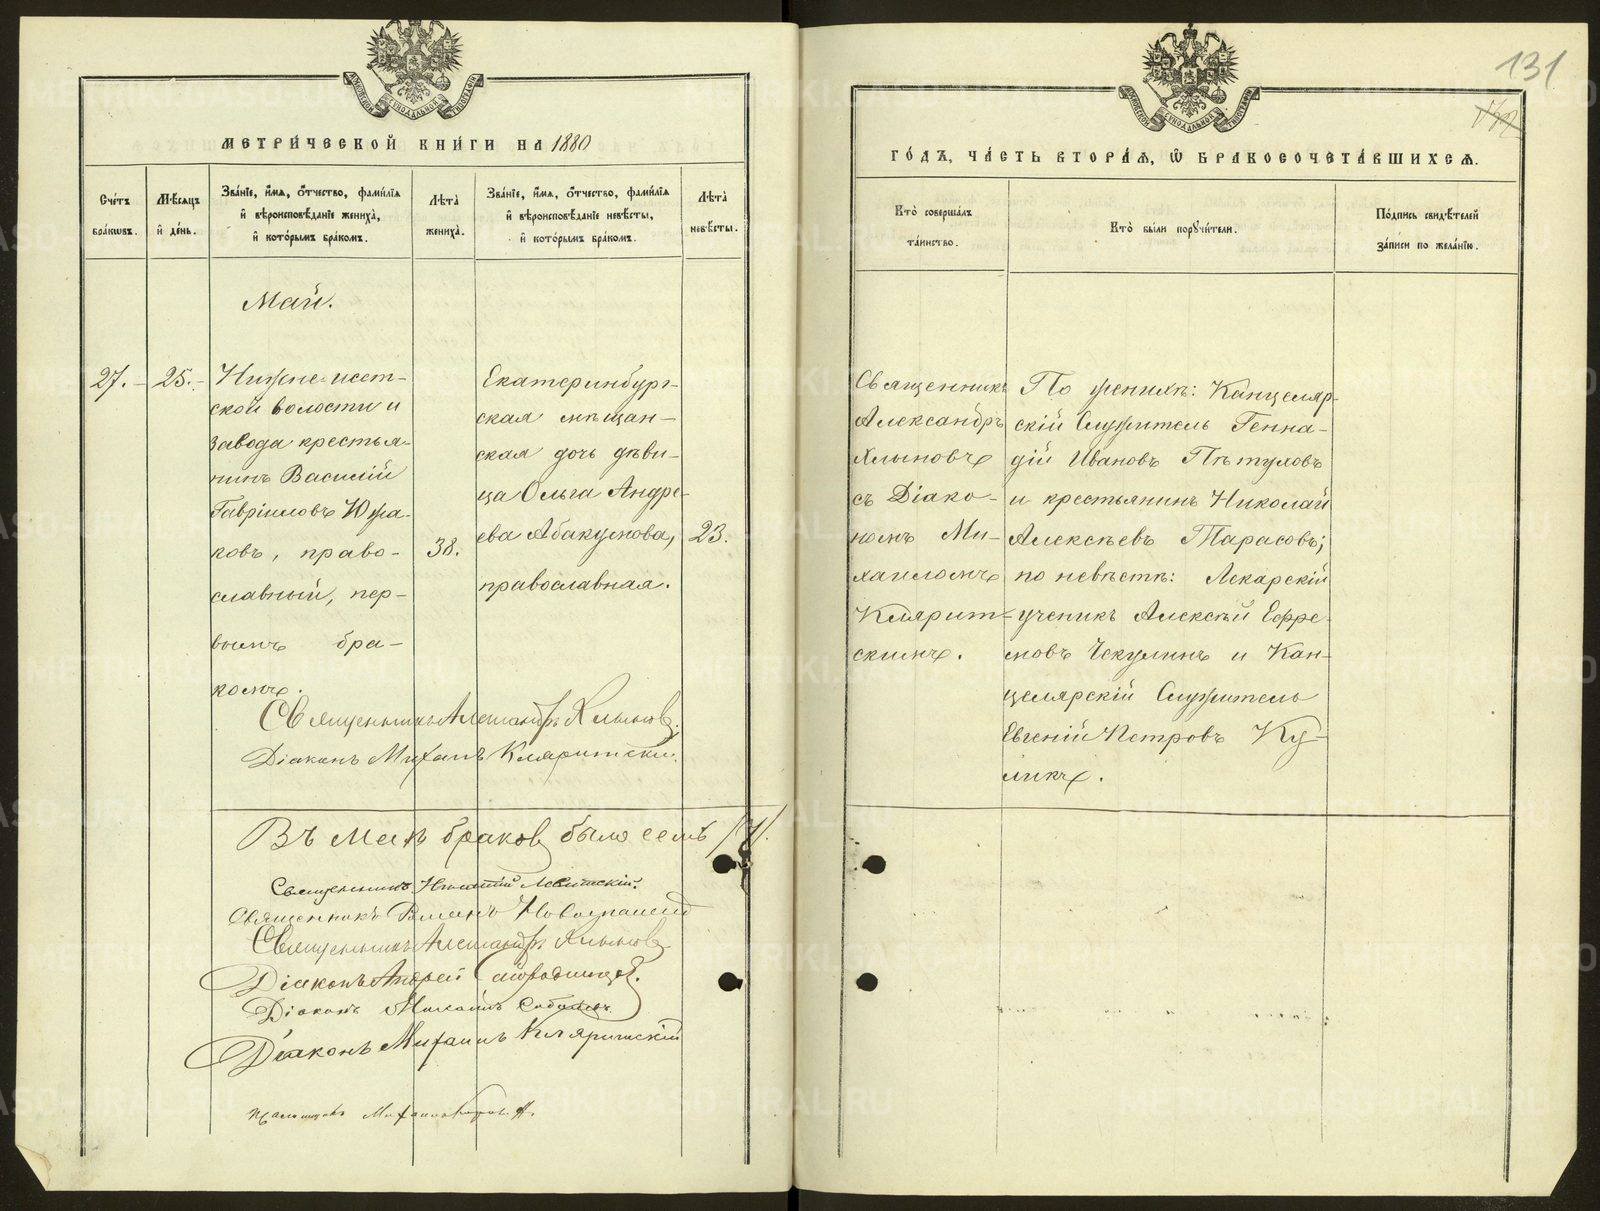 МЕТРИ́ЧЕСКОЙ КНИ́ГИ НА 1880
Сче́тъ
бра́кωвъ.
Мѣ́сяцъ
и҆ де́нь.
Зва́нїе, и҆́мя, ѻ҆́тчество, фами́лїѧ
и҆ вѣроисповѣ́данїе жениха̀,
и҆ кото́рымъ бра́комъ.
Лѣ́та
жениха̀.
Зва́нїе, и҆́мя, ѻ҆́тчество, фами́лїѧ
и҆ вѣроисповѣ́данїе невѣ́сты,
и҆ кото́рымъ бра́комъ.
Лѣ́та
невѣ́сты.
Май.
27.
25.
Нижне-исет-
ской волости и
завода крестья-
нинъ Василій
Гавріиловъ Южа-
ковъ, право-
славный, пер-
вымъ бра-
комъ.
38.
Екатеринбург-
ская мѣщан-
ская дочь дѣви-
ца Ольга Андре-
ева Абакумова,
православная.
23.
Священникъ Александръ Хлыновъ.
Діаконъ Михаилъ Кляритскій.
Въ маѣ браковъ было семь /7/.
Священникъ Левитскій.
Священникъ
Священникъ Александръ Хлыновъ
Діаконъ Андрей
Діаконъ Михаилъ
Діаконъ Михаилъ Кляритскій
Псаломщикъ
131
ГО́ДЪ, ЧА́СТЬ ВТОРА́Ѧ, Ѽ БРАКОСОЧЕТА́ВШИХСѦ.
Кто̀ соверша́лъ
та́инство.
Кто̀ бы́ли порꙋчи́тели.
По́дпись свидѣ́телей
за́писи по жела́нїю.
Священникъ
Александръ
Хлыновъ
съ Діако-
номъ Ми-
хаиломъ
Кляритъ-
скимъ.
По женихѣ: Канцеляр-
скій Служитель Генна-
дій Ивановъ Пѣтуховъ
и крестьянинъ Николай
Алексѣевъ Тарасовъ;
по невѣстѣ: Лекарскій
ученикъ Алексѣй Ефре-
мовъ Чекулинъ и Кан-
целярскій Служитель
Евгеній Петровъ Ку-
ликъ.
METRIKI.GASO-URAL.RU